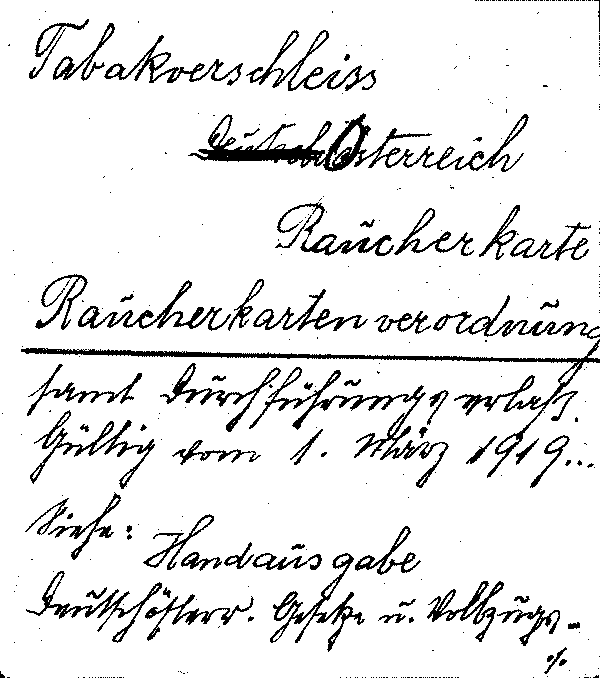 Tabakverschleiss
Österreich
Raucherkarte
Raucherkartenverordnung
samt Durchführungserlaß.
Gültig vom 1. März 1919...
Siehe:
Handausgabe
Deutschösterr. Gesetze u. Vollzugs-
./.